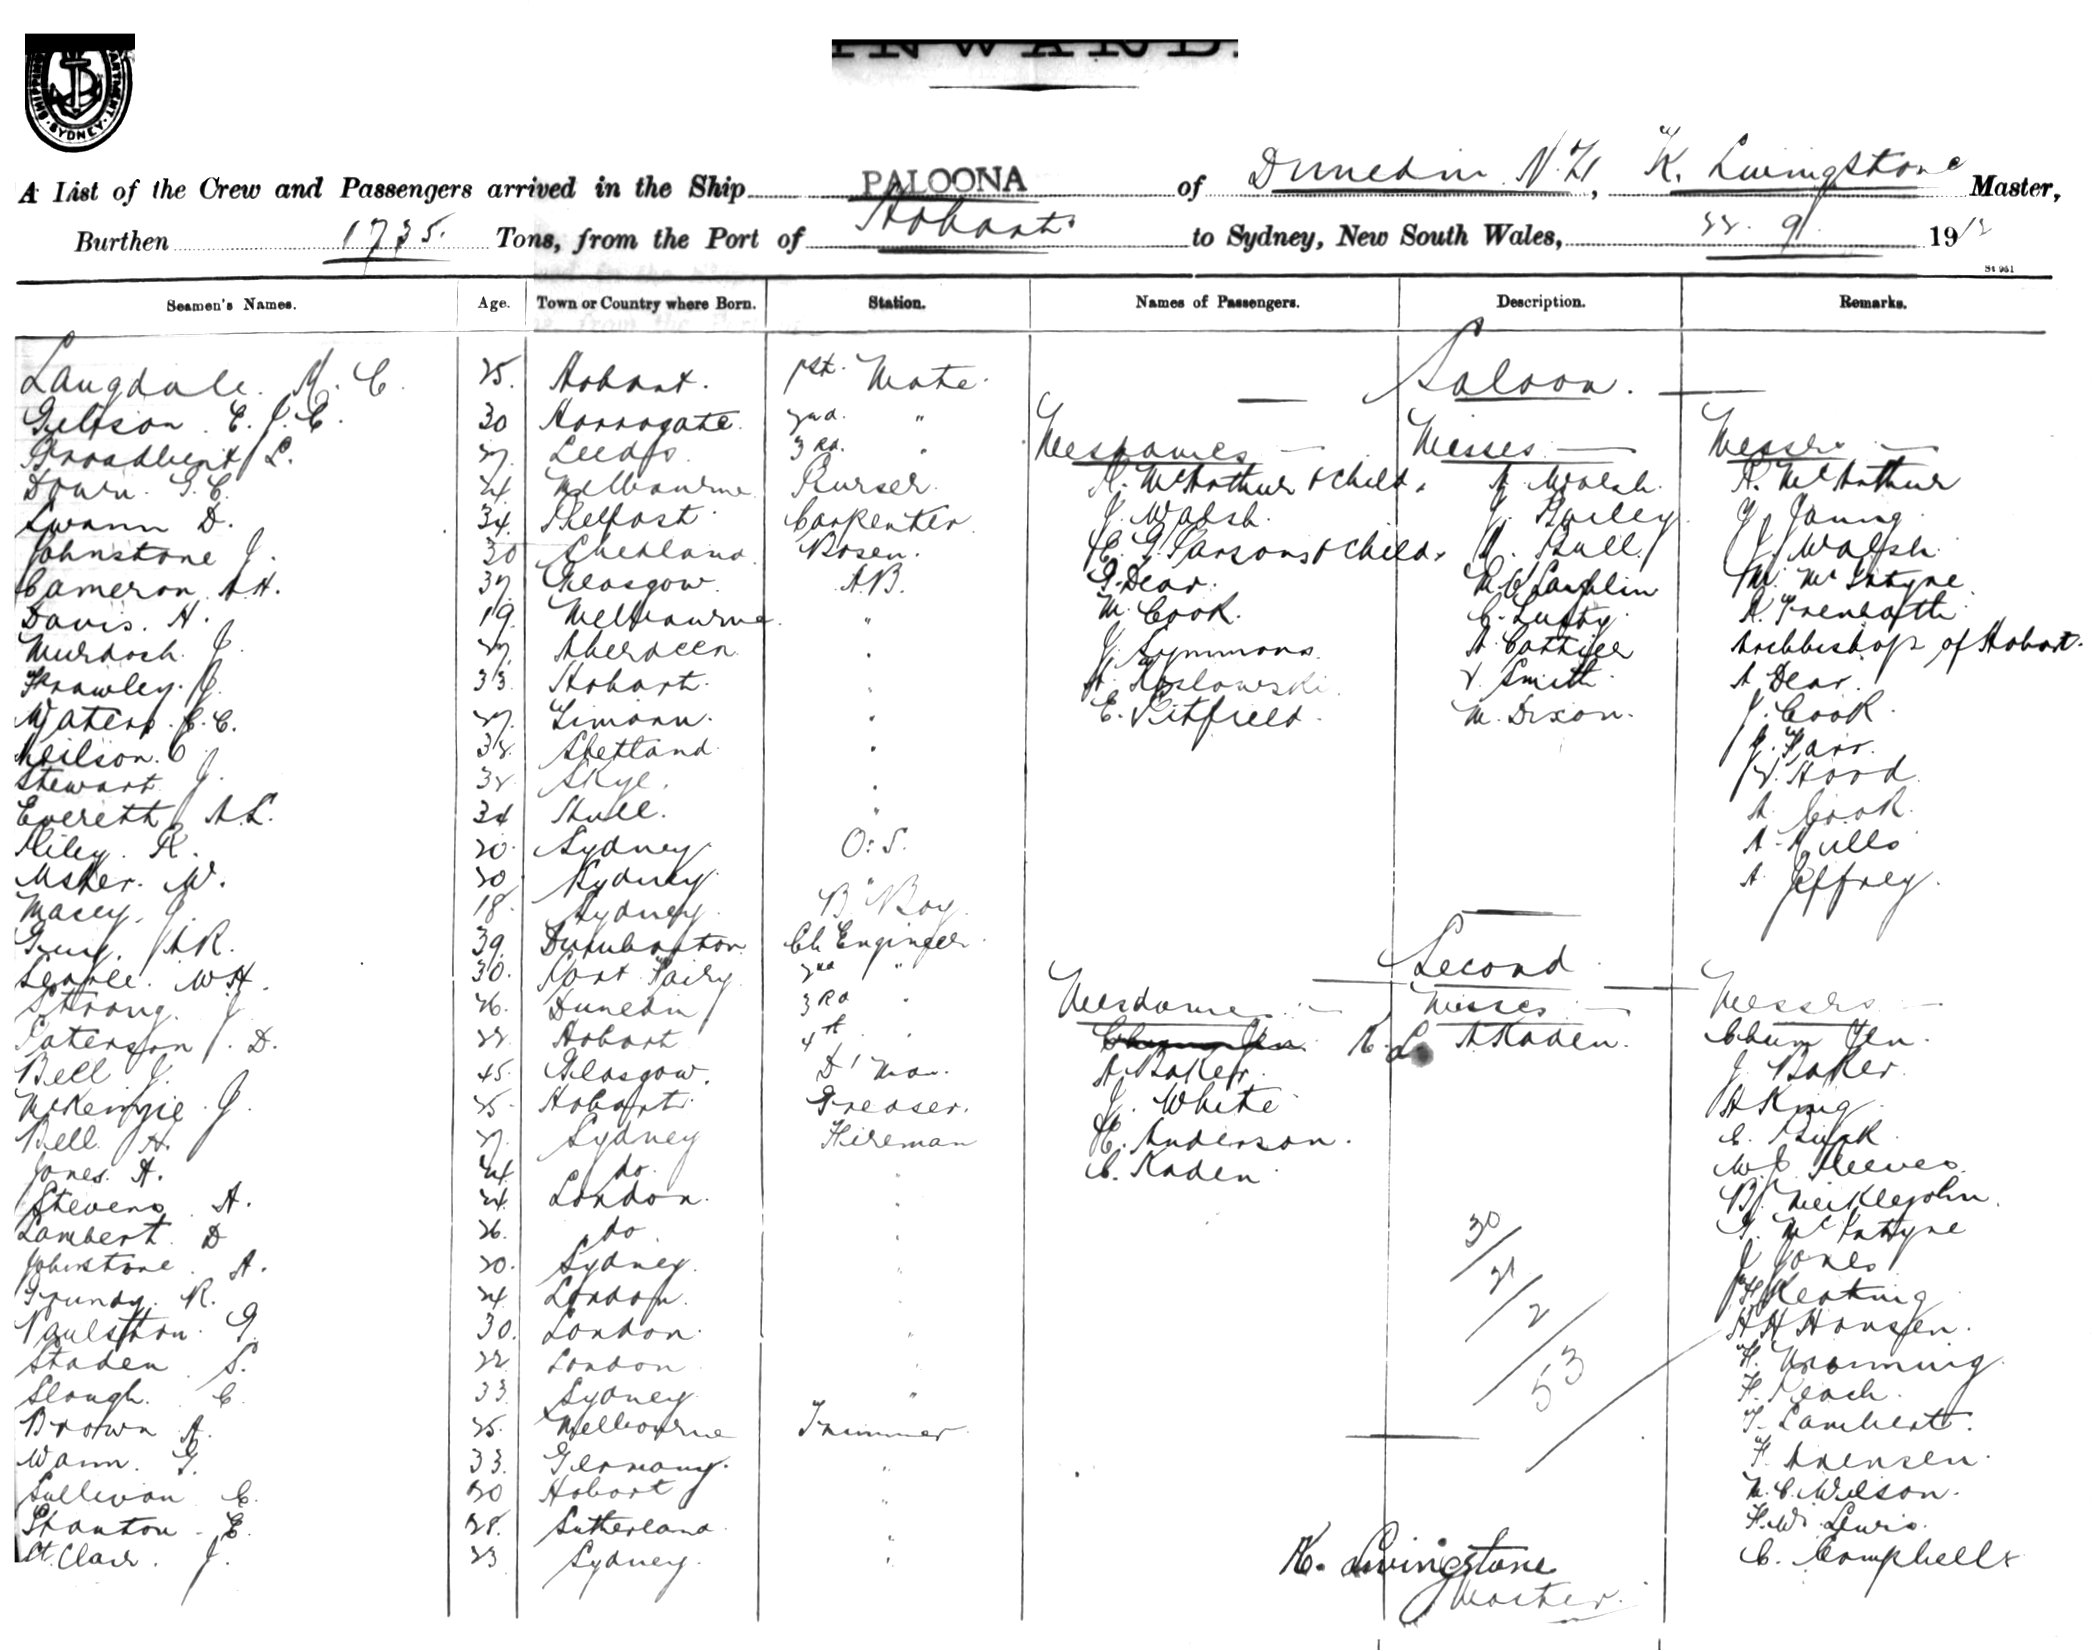 SHIPPING DEPARTMENT SYDNEY
INWARD.
A List of the Crew and Passengers arrived in the Ship PALOONA of Dunedin N.Z., K. Livingstone Master,
Burthen 1735. Tons, from the Port of Hobart. to Sydney, New South Wales, 22. 9. 1912
St 961
Seamen's Names. Age. Town or Country where Born. Station. Names of Passengers. Description. Remarks.
Saloon.
Langdale. M. C. 25. Hobart. 1st. Mate.
E. J. C. 30 Harrogate. 2nd. "
Broadbent L. 27. Leeds. 3rd. " Mesdames — Misses — Messrs —
Down. G. C. 24 Melbourne Purser. A. McArthur & child. A. Walsh. A. McArthur
Swann D. 34. Belfast. Carpenter J. Walsh. J. Bailey G. Young.
Johnstone J. 30 Shetland Bosen. E. G. Parsons & child. A. Bull. J. Walsh.
Cameron A.H. 37. Glasgow. A.B. G. Dear. M. M. McIntyre
Davis. H. 19. Melbourne " M. Cook. C. A.
Murdoch J. 27. Aberdeen " J. Symmons. A. Archbishop of Hobart.
Frawley. J. 33. Hobart. " A. Koslowski. V. Smith. A. Dear.
Waters. E. C. 27. " E. Pitfield. M. Dixon. J. Cook.
Neilson. C. 32. Shetland. " J. Farr.
Stewart J. 32. Skye. " V. Hood.
Everett A.L. 34 Hull. " A. Cook.
Riley. R. 20. Sydney. O.S. A.
Usher. W. 20 Sydney. " A. Jeffrey.
Macey. J. 18. Sydney. B. Boy.
Guy. A.R. 39. Dumbarton Ch. Engineer.
Searle. W.H. 30. Port Fairy. 2nd " Second
Strong. J. 26. Dunedin 3rd " Mesdames — Misses — Messrs —
Paterson. D. 22. Hobart 4th " A. Kaden. Chum Jen.
Bell J. 45. Glasgow. D' Man. A. Baker. J. Baker.
McKenzie. J. 25. Hobart. Greaser. J. White. A King.
Bell H. 27. Sydney Fireman E. Anderson. C.
Jones. A. 24. do. " C. Kaden. W. J. Reeves.
Stevens. A. 24. London. " B. Meiklejohn.
Lambert. D 26. do. " 30 G. McIntyre
Johnstone. A. 20. Sydney. " 21 J. Jones
Grundy. R. 24. London. " 2 F Keating
Paulston. G. 30. London. " H H Hansen.
Staden S. 22. London " 53 F.
Slough. C. 33. Sydney " F.
Brown A. 25. Melbourne Trimmer T. Lambert.
Wann. G. 33. Germany. " F.
Sullivan C. 20 Hobart " M. C. Wilson.
Stanton. E. 28. Sutherland. " F. W. Lewis.
St. Clair. J. 23 Sydney. " K. Livingstone C. Campbell
Master.